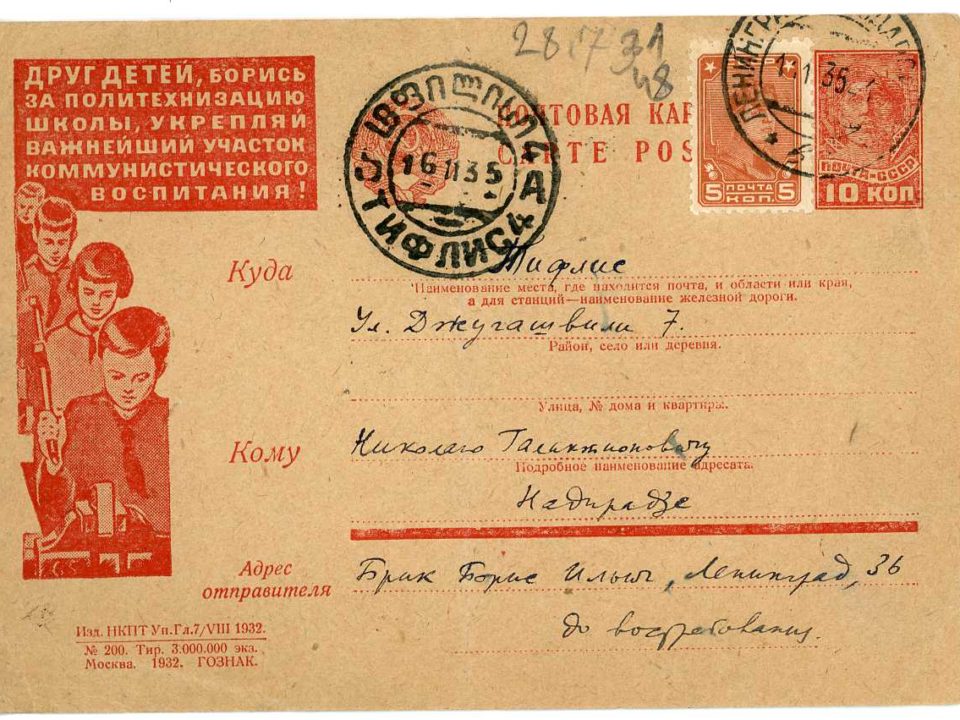 28.7.31
ДРУГ ДЕТЕЙ, БОРИСЬ
ЗА ПОЛИТЕХНИЗАЦИЮ
ШКОЛЫ, УКРЕПЛЯЙ
ВАЖНЕЙШИЙ УЧАСТОК
КОММУНИСТИЧЕСКОГО
ВОСПИТАНИЯ!
16 11 35
А
ТИФЛИС 4
ПОЧТОВАЯ КАР
CARTE POS
5 ПОЧТА 5
КОП.
ЛЕНИНГРАД
ПОЧТА-СССР
10 КОП
Куда
Тифлис
Наименование места, где находится почта, и области или края,
а для станций—наименование железной дороги.
Ул. Джугашвили 7.
Район, село или деревня.
Улица, № дома и квартиры.
Кому
Николаю Галактионовичу
Подробное наименование адресата.
Надирадзе
Адрес
отправителя
Брик Борис Ильич, Ленинград, 36
до востребования.
Изд. НКПТ Уп.Гл.7/VIII 1932.
№ 200. Тир. 3.000.000 экз.
Москва. 1932. ГОЗНАК.